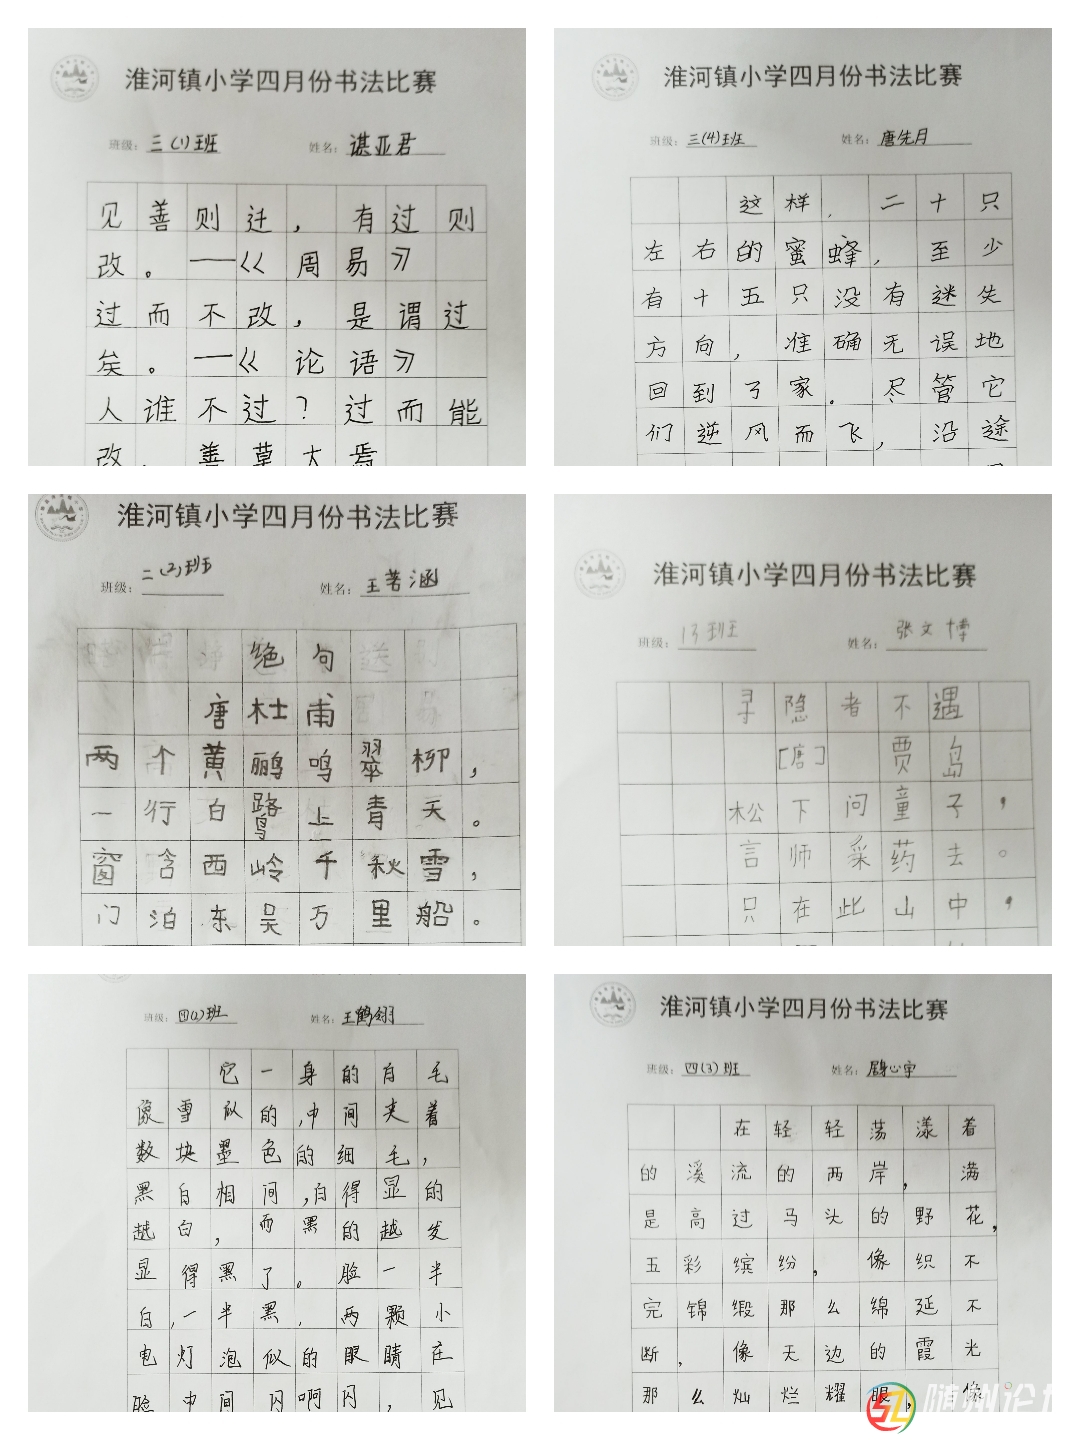 淮河镇小学四月份书法比赛
班级：三(1)班 姓名：谌亚君
见善则迁，有过则
改。——《周易》
过而不改，是谓过
矣。——《论语》
人谁不过？过而能
改，善莫大焉
淮河镇小学四月份书法比赛
班级：三(4)班 姓名：唐先月
这样，二十只
左右的蜜蜂，至少
有十五只没有迷失
方向，准确无误地
回到了家。尽管它
们逆风而飞，沿途
淮河镇小学四月份书法比赛
班级：二(2)班 姓名：王茗涵
绝句
唐杜甫
两个黄鹂鸣翠柳，
一行白鹭上青天。
窗含西岭千秋雪，
门泊东吴万里船。
淮河镇小学四月份书法比赛
班级：13班 姓名：张文博
寻隐者不遇
[唐]贾岛
松下问童子，
言师采药去。
只在此山中，
班级：四(2)班 姓名：王鹤翎
它一身的白毛
像雪似的，中间夹着
数块墨色的细毛，
黑白相间，白得显的
越白，而黑的越发
显得黑了。脸一半
白，一半黑，两颗小
电灯泡似的眼睛在
脸中间闪啊闪，见
淮河镇小学四月份书法比赛
班级：四(3)班 姓名：心宇
在轻轻荡漾着
的溪流的两岸，满
是高过马头的野花，
五彩缤纷，像织不
完锦缎那么绵延不
断，像天边的霞光
那么灿烂耀眼，像
随州论坛